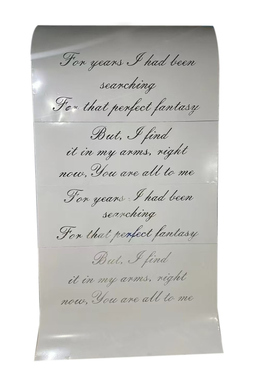 For years I had been
searching
For that perfect fantasy
But, I find
it in my arms, right
now, You are all to me
For years I had been
searching
For that perfect fantasy
But, I find
it in my arms, right
now, You are all to me